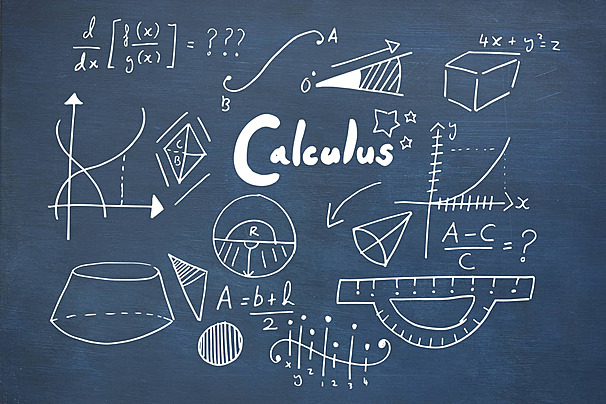 d/dx [f(x)/g(x)] = ???
A
B
O
4x + y²=2
C
B
Calculus
y
x
R
A-C/C = ?
A = b+h/2
x
y 2 1 2 3 4